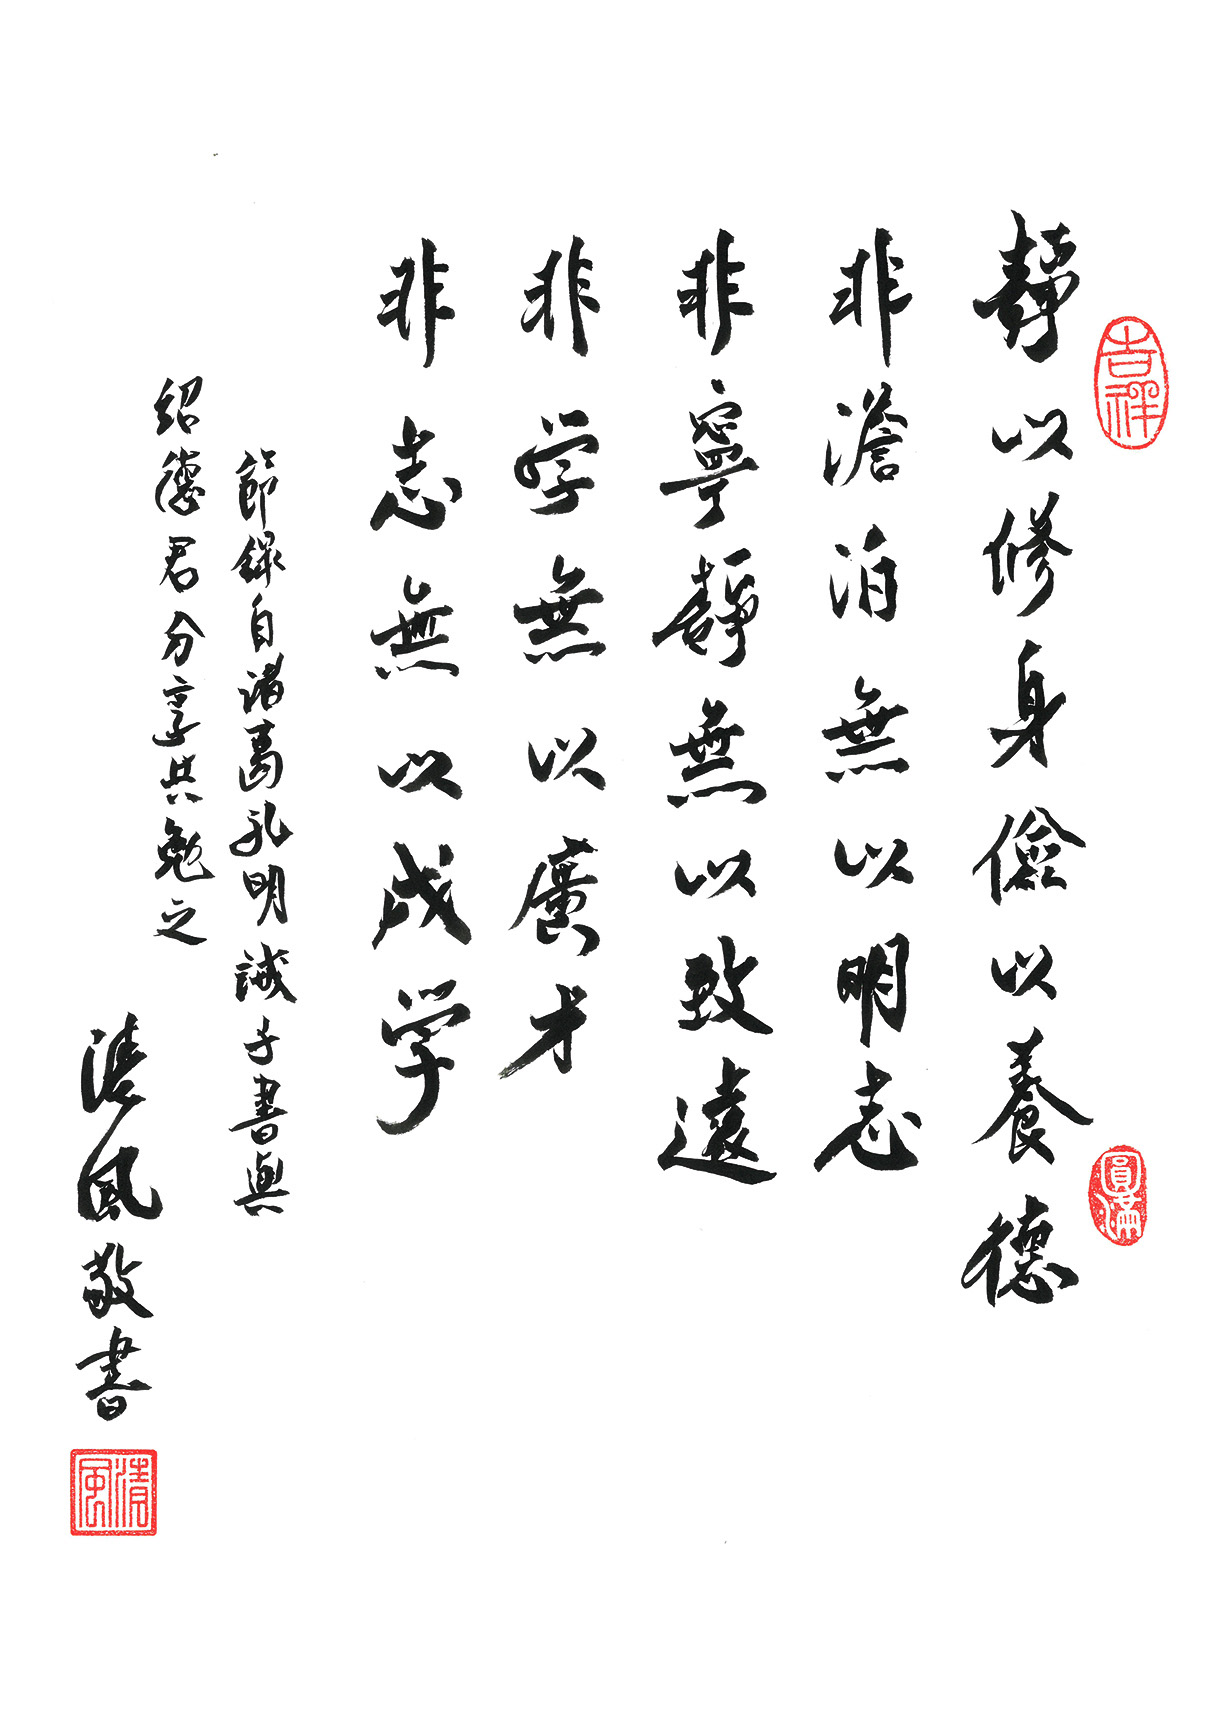 吉祥
靜以修身儉以養德
非澹泊無以明志
非寧靜無以致遠
非学無以廣才
非志無以成学
節錄自諸葛孔明誡子書與
紹德君分享共勉之
清風敬書
圓滿
清風